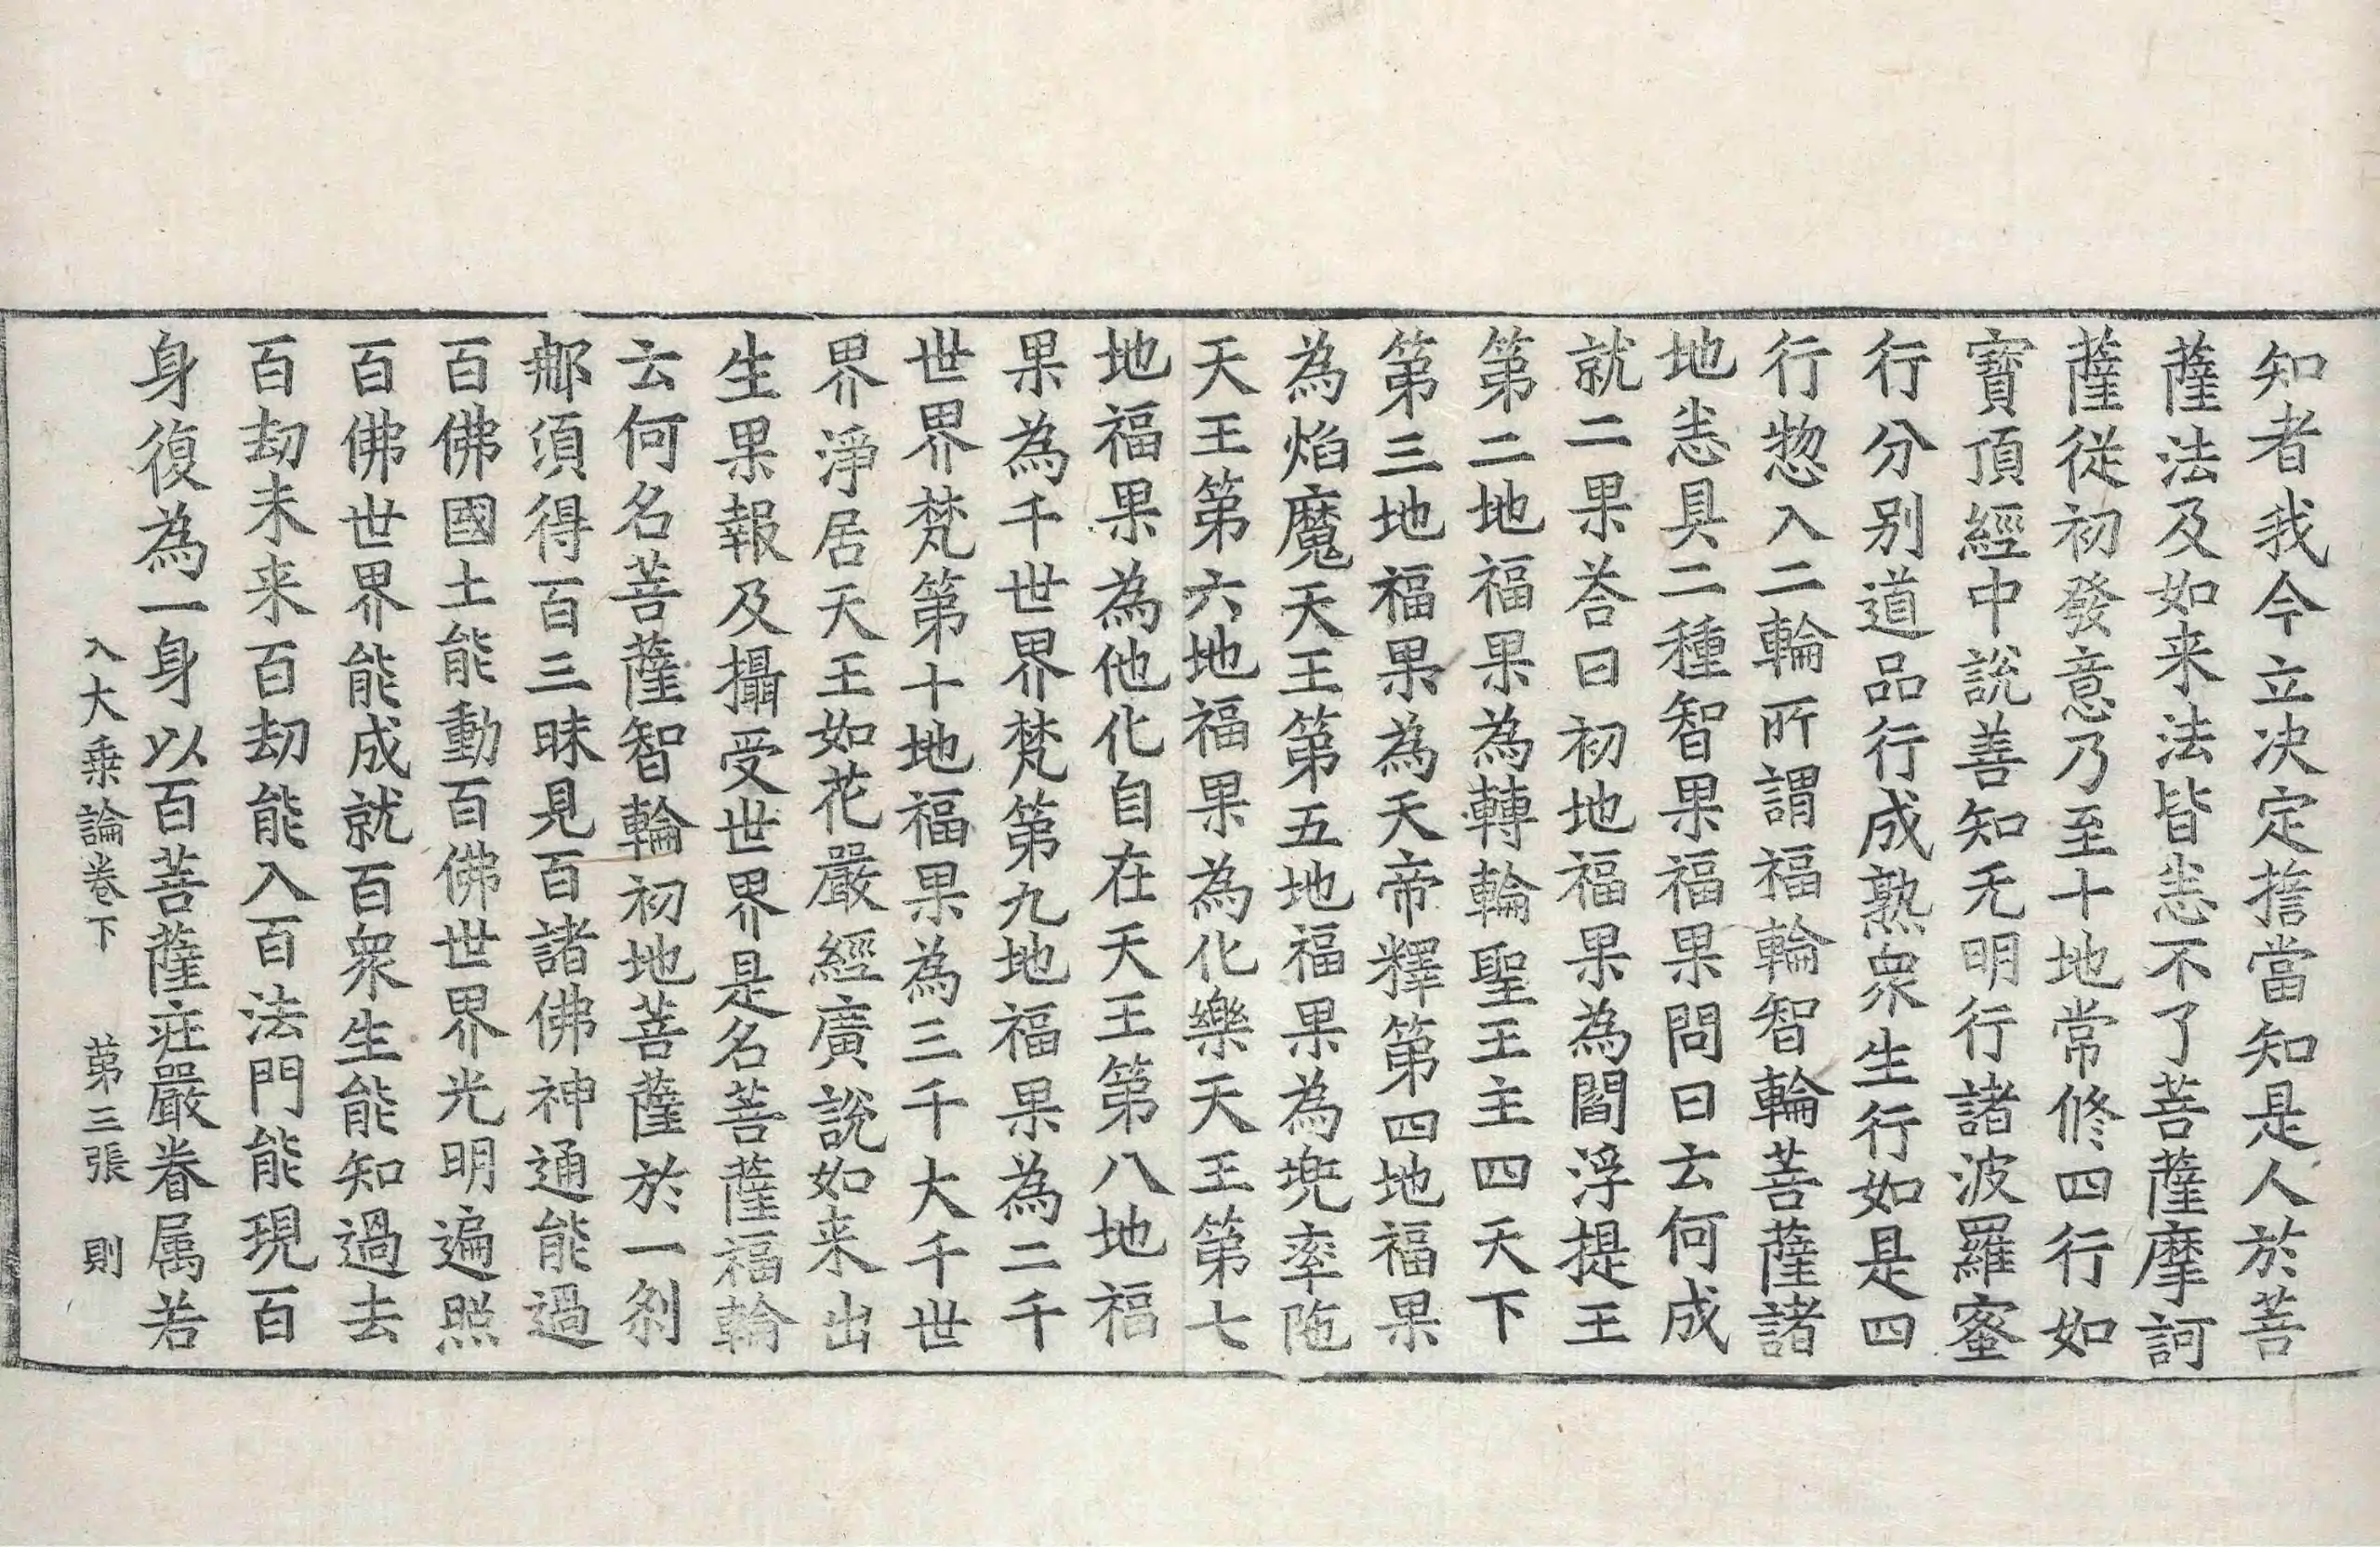 知者我今立决定擔當知是人於菩
薩法及如来法皆恙不了菩薩摩訶
薩從初發意乃至十地常修四行如
寶頂經中說善知无明行諸波羅蜜
行分别道品行成熟衆生行如是四
行惣入二輪所謂福輪智輪菩薩諸
地恙具二種智果福果問曰云何成
就二果荅曰初地福果為閻浮提王
第二地福果為轉輪聖王主四天下
第三地福果為天帝釋第四地福果
為焰魔天王第五地福果為兜率陁
天王第六地福果為化樂天王第七
地福果為他化自在天王第八地福
果為千世界梵第九地福果為二千
世界梵第十地福果為三千大千世
界淨居天王如花嚴經廣說如来出
生果報及攝受世界是名菩薩福輪
云何名菩薩智輪初地菩薩於一刹
那須得百三昧見百諸佛神通能過
百佛國土能動百佛世界光明遍照
百佛世界能成就百衆生能知過去
百劫未来百劫能入百法門能現百
身復為一身以百菩薩莊嚴眷属若
入大乗論卷下 第三張 則